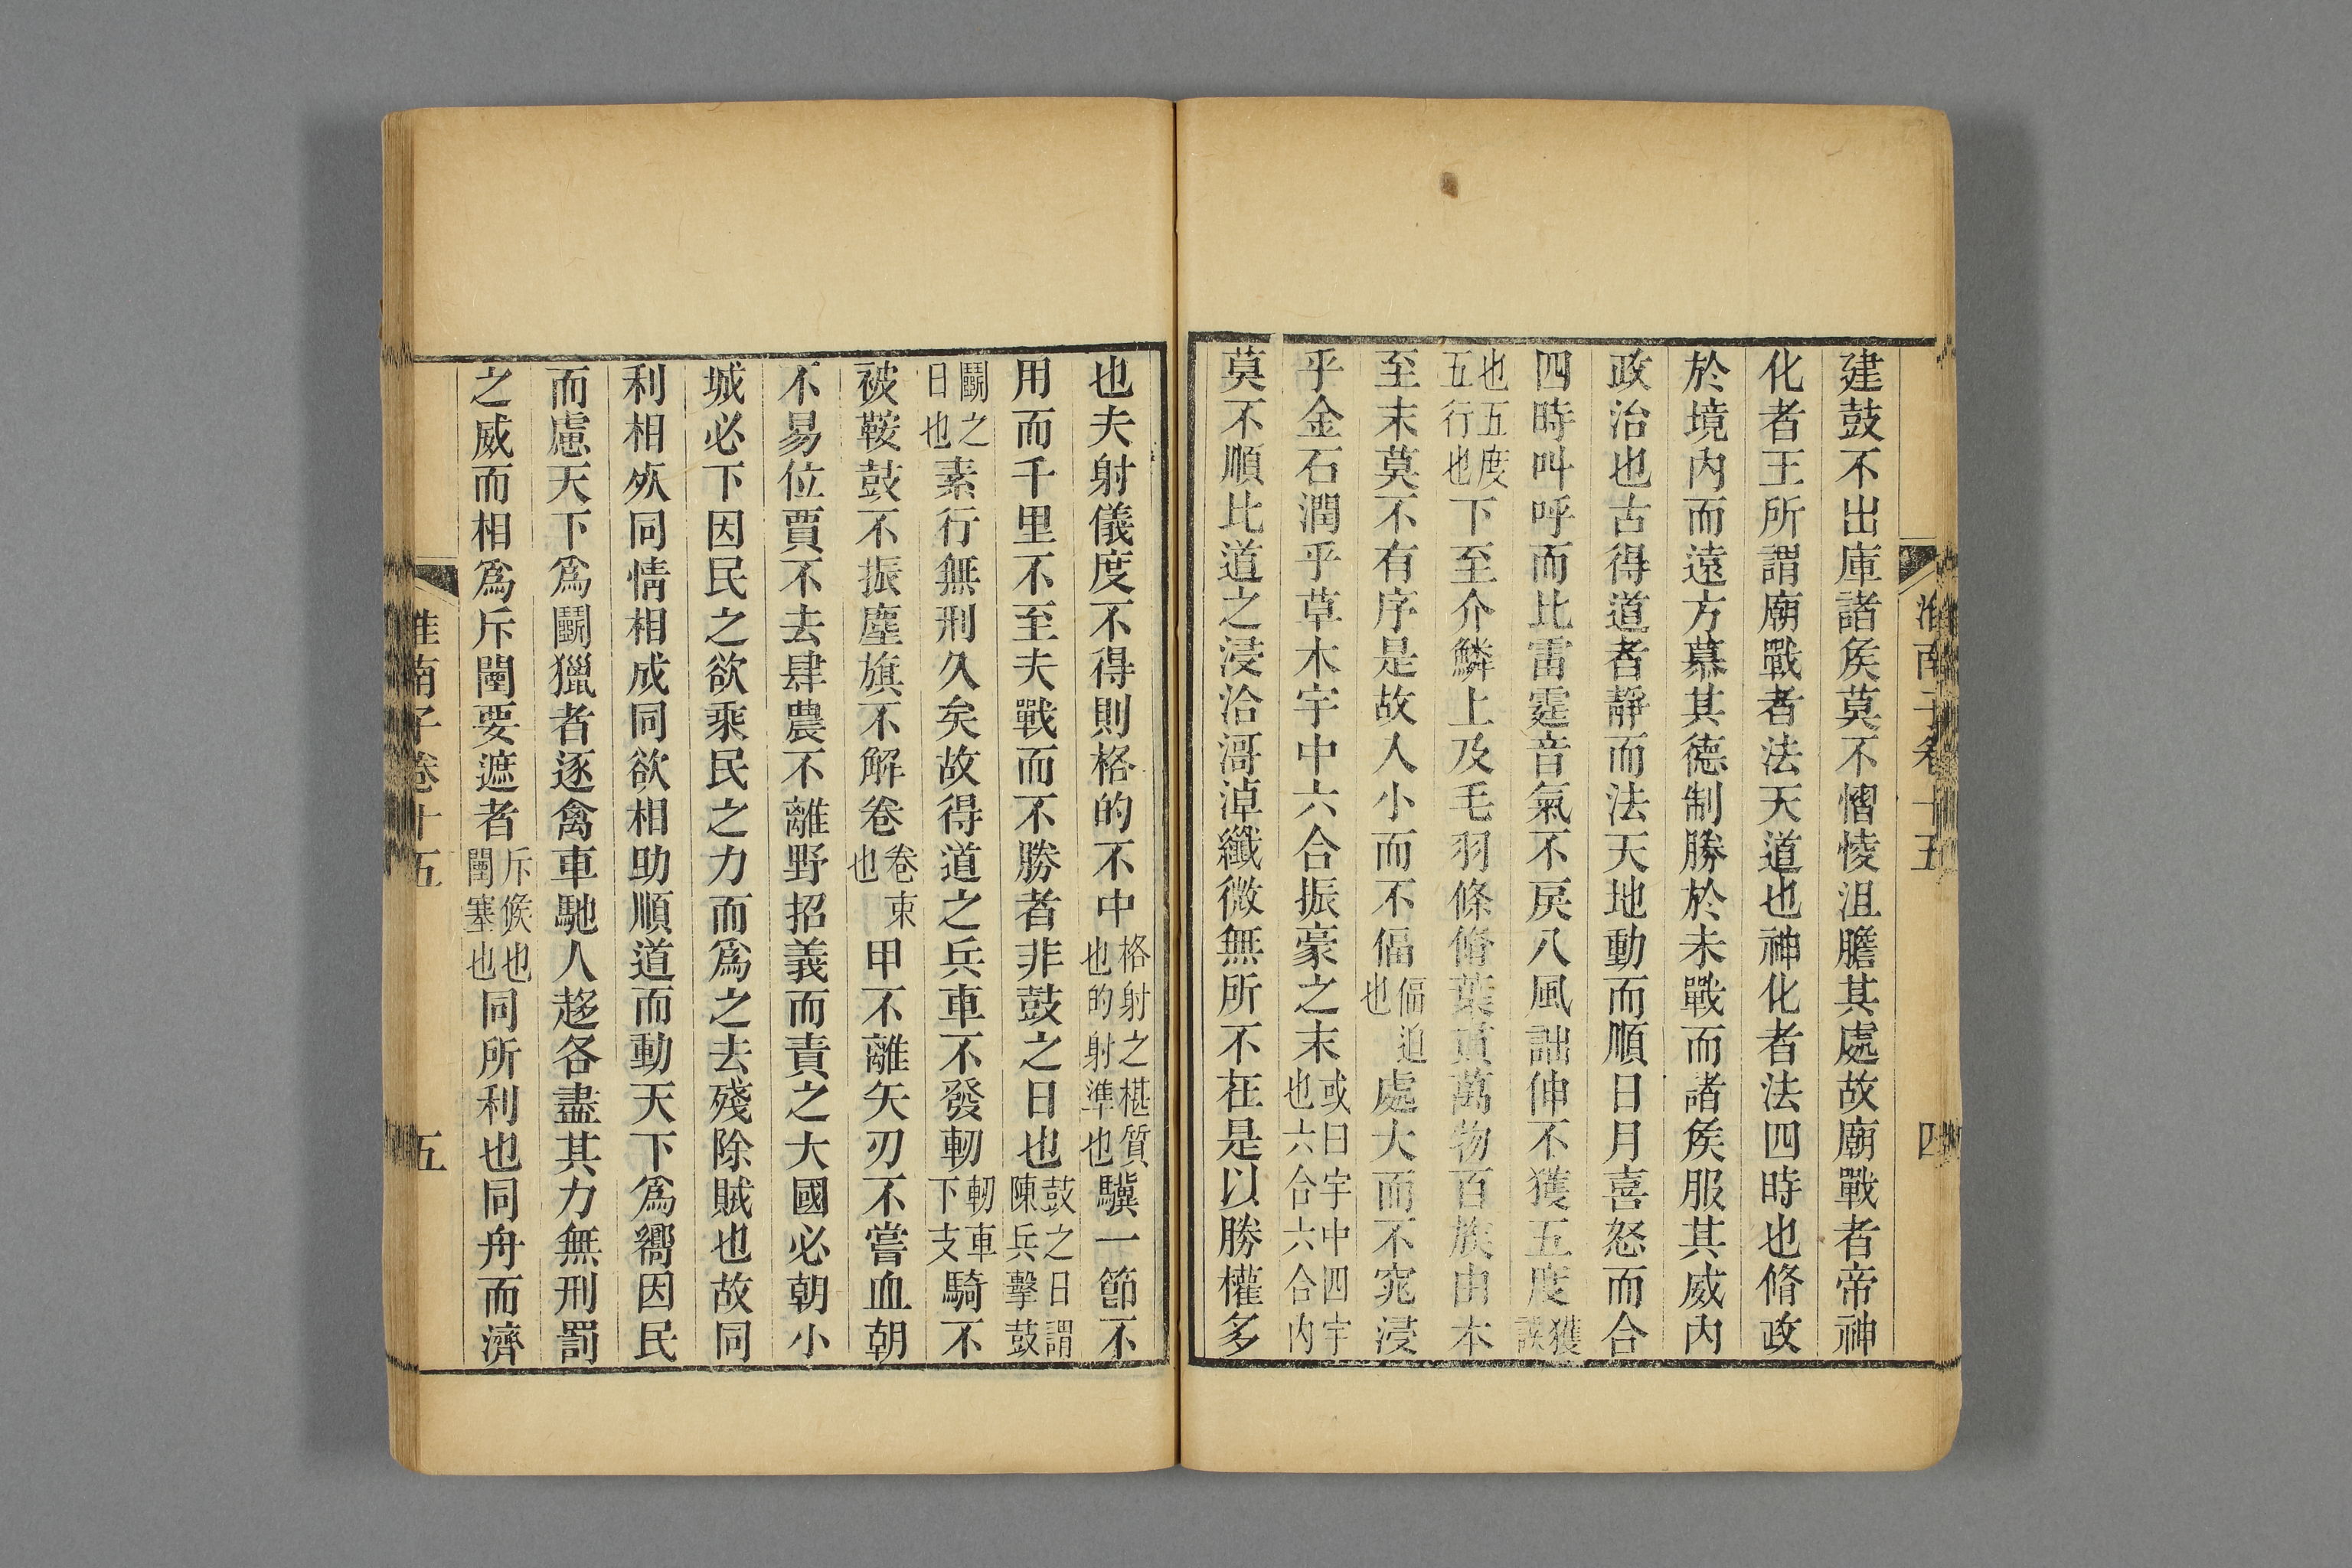 淮南子卷十五 四
建鼓不出庫諸矦莫不慴悷沮膽其處故廟戰者帝神
化者王所謂廟戰者法天道也神化者法四時也脩政
於境內而遠方慕其德制勝於未戰而諸矦服其威內
政治也古得道者靜而法天地動而順日月喜怒而合
四時叫呼而比雷霆音氣不戾八風詘伸不獲五度獲誤
也五度五行也下至介鱗上及毛羽條脩葉貫萬物百族由本
至末莫不有序是故入小而不偪偪迫也處大而不窕浸
乎金石潤乎草木宇中六合振豪之末或曰宇中四宇也六合六合內
莫不順比道之浸洽滒淖纖微無所不在是以勝權多
也夫射儀度不得則格的不中格射之椹質也的射準也驥一節不
用而千里不至夫戰而不勝者非鼓之日也鼓之日謂陳兵擊鼓
鬭之日也素行無刑久矣故得道之兵車不發軔軔車下支騎不
被鞍鼓不振塵旗不解卷卷束也甲不離矢刃不嘗血朝
不易位賈不去肆農不離野招義而責之大國必朝小
城必下因民之欲乘民之力而爲之去殘除賊也故同
利相死同情相成同欲相助順道而動天下爲嚮因民
而慮天下爲鬭獵者逐禽車馳人趍各盡其力無刑罰
之威而相爲斥闉要遮者斥候也闉塞也同所利也同舟而濟
淮南子卷十五 五